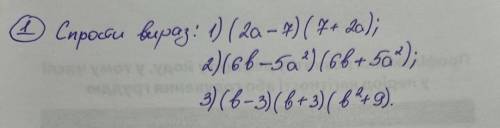 ① Спрости вираз: 1) (2a-7)(7+2a);
2) (6b-5a²)(6b+5a²);
3) (b-3)(b+3)(b²+9).